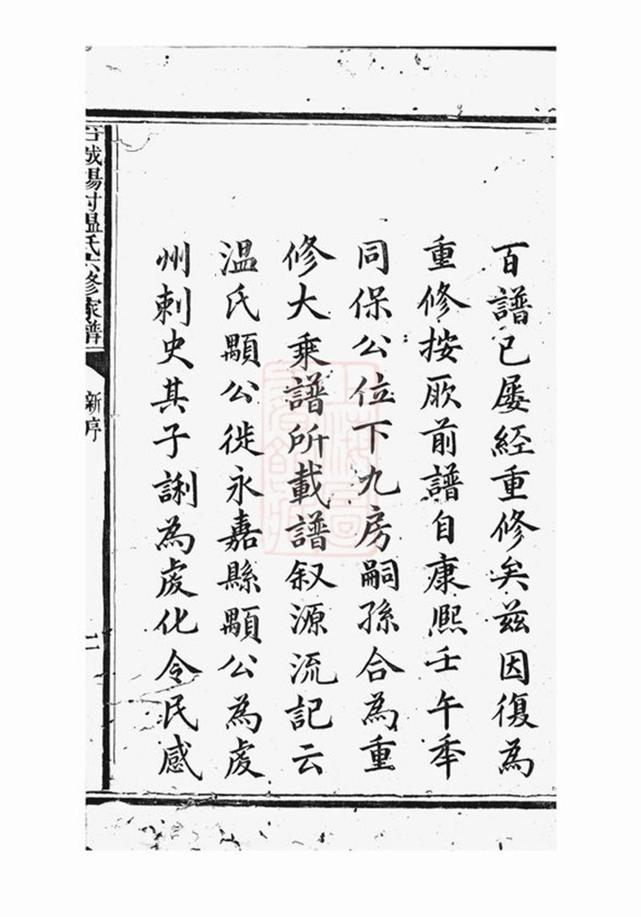 百譜已屡經重修矣兹因復為
重修按厥前譜自康熙壬午秊
同保公位下九房嗣孫合為重
修大乘譜所載譜叙源流記云
溫氏顯公徙永嘉縣顯公為處
州刺史其子訓為處化令民感
城湯村溫氏六修家譜
新序
二